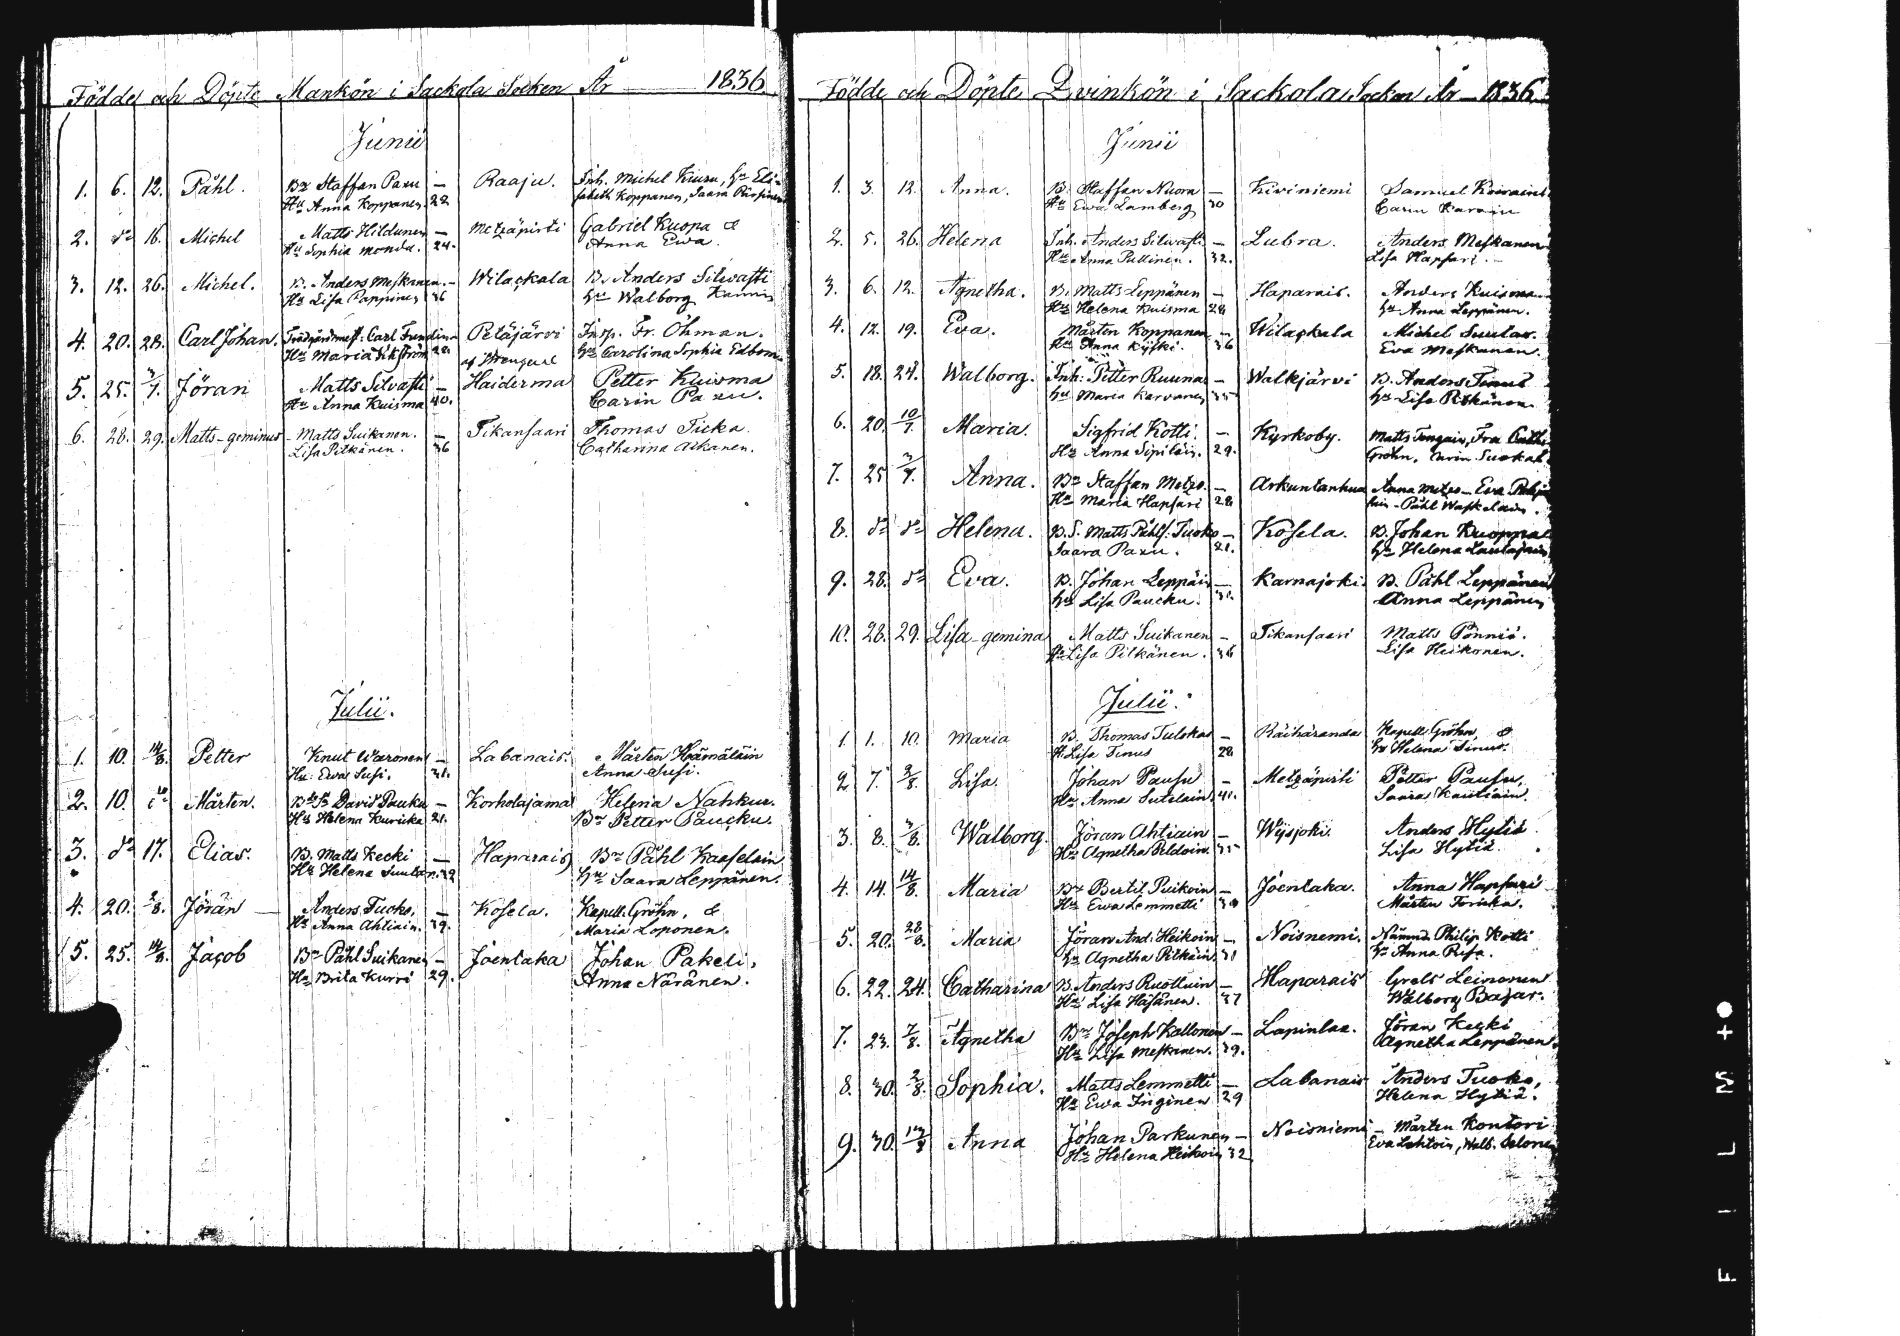 Födde och Döpte Mankön i Sackola Socken År 1836
Junii
1. 6. 12. Påhl. Br Staffan Paxu — Raaju. Inh. Michel Kiuru, Hu Eli-
Hu Anna Koppanen. 22 sabeth Koppanen, Saara
2. do 16. Michel Matts Hildunen — Metzäpirti Gabriel Kuopa &
Hu Sophia Monda. 24. Anna Ewa.
3. 12. 26. Michel. B. Anders Meskanen. — Wilackala B. Anders Silwasti
Hu Lisa Pappinen 36 Hu Walborg
4. 20. 28. Carl Johan. Carl Petäjärvi Insp. Fr. Öhman.
Hu Maria 28. af Hu Carolina Sophia
5. 25. 3/7. Jöran Matts Silvasti — Haiderma Petter Kuisma
Hu Anna Kuisma 40. Carin Paxu.
6. 28. 29. Matts-geminus Matts Suikanen. — Tikansaari Thomas Ticka.
Lisa Pitkänen. 36 Catharina Aikanen.
Julii.
1. 10. 14/8. Petter Knut Waronen — Labanais. Mårten Hämäläin
Hu: Ewa Susi. 31. Anna Susi.
2. 10. Mårten. David Pauku — Korholajama Helena Nahkur.
Hu Helena Kuricka 21. Br Petter Paucku.
3. do 17. Elias. B. Matts Kecki — Haparais Br Påhl Kaaselain
Hu Helena Suutar. 32 Hu Saara Leppänen.
4. 20. 2/8. Jöran Anders Tuoko, — Kosela. Kapell. Gröhn, &
Hu Anna Ahtiain. 39. Maria Loponen.
5. 25. 14/8. Jacob Br Påhl Suikanen — Joentaka Johan Pakeli,
Hu Brita Kurri 29. Anna Näränen.
Födde och Döpte Qvinkön i Sackola Socken År 1836.
Junii
1. 3. 12. Anna. B. Staffan Nuora — Kiviniemi Samuel
Hu Ewa Lamberg 30 Carin
2. 5. 26. Helena Inh. Anders Silwasti — Lubra. Anders Meskanen
Hu Anna Pullinen. 32. Lisa Hapsari.
3. 6. 12. Agnetha. B. Matts Leppänen — Haparais. Anders Kuisma
Hu Helena Kuisma 28 Hu Anna Leppänen.
4. 12. 19. Eva. Mårten Koppanen — Wilackala Michel Suutar.
Hu Anna Kijski. 36 Eva Meskanen.
5. 18. 24. Walborg. Inh: Petter Ruuna — Walkjärvi B. Anders Tinus
Hu Maria Karvanen 35 Hu Lisa Pitkänen
6. 20. 10/7. Maria. Sigfrid Kotti. — Kyrkoby. Matts
Hu Anna Sipiläin. 29. Gröhn, Carin
7. 25 3/7. Anna. Br Staffan Metzo. — Arkuntanhua Anna Metzo — Eva
Hu Maria Hapsari 28 Påhl
8. do do Helena. B. S. Matts Påhls: Tuoko — Kosela. B. Johan Kuoppa
Saara Paxu. 21. Hu Helena
9. 28. do Eva. B. Johan Leppäin — Karnajoki. B. Påhl Leppänen
Hu Lisa Paucku. 31. Anna Leppänen
10. 28. 29. Lisa-gemina Matts Suikanen — Tikansaari Matts Pönniö.
Hu Lisa Pitkänen. 36 Lisa Heikonen.
Julii.
1. 1. 10. Maria B. Thomas Tulokas — Räihäranda Kapell. Gröhn, &
Hu Lisa Tinus 28 Hu Helena Sinus.
2. 7. 3/8. Lisa. Johan Pausu — Metzäpirti Petter Pausu,
Hu Anna Sutelain 41. Saara Kautiain.
3. 8. 3/8. Walborg. Jöran Ahtiain — Wijsjoki. Anders Hytiä
Hu Agnetha Peldoin. 35 Lisa Hytiä.
4. 14. 14/8. Maria Br Bertil Puikoin — Joentaka. Anna Hapsari
Hu Ewa Lemmetti 30 Mårten Toricka.
5. 20. 28/8. Maria Jöran And: Heikoin — Noisnemi. Nämnd. Philip Kotti
Hu Agnetha Pitkäin 31 Hu Anna Risa.
6. 22. 24. Catharina B. Anders Ruotluin — Haparais Grels Leinonen
Hu Lisa Häjänen. 37 Walborg Bajar.
7. 23. 7/8. Agnetha Br Joseph Kallonen — Lapinlax. Jöran Kecki
Hu Lisa Meskanen. 39. Agnetha Leppänen.
8. 30. 2/8. Sophia. Matts Lemmetti — Labanais Anders Tuoko,
Hu Ewa Inginen 29 Helena Hytiä.
9. 30. 14/8 Anna Johan Parkunen — Noisniemi — Mårten Kontori
Hu Helena Heikoin 32 Eva Lehtoin, Walb.
F I L M